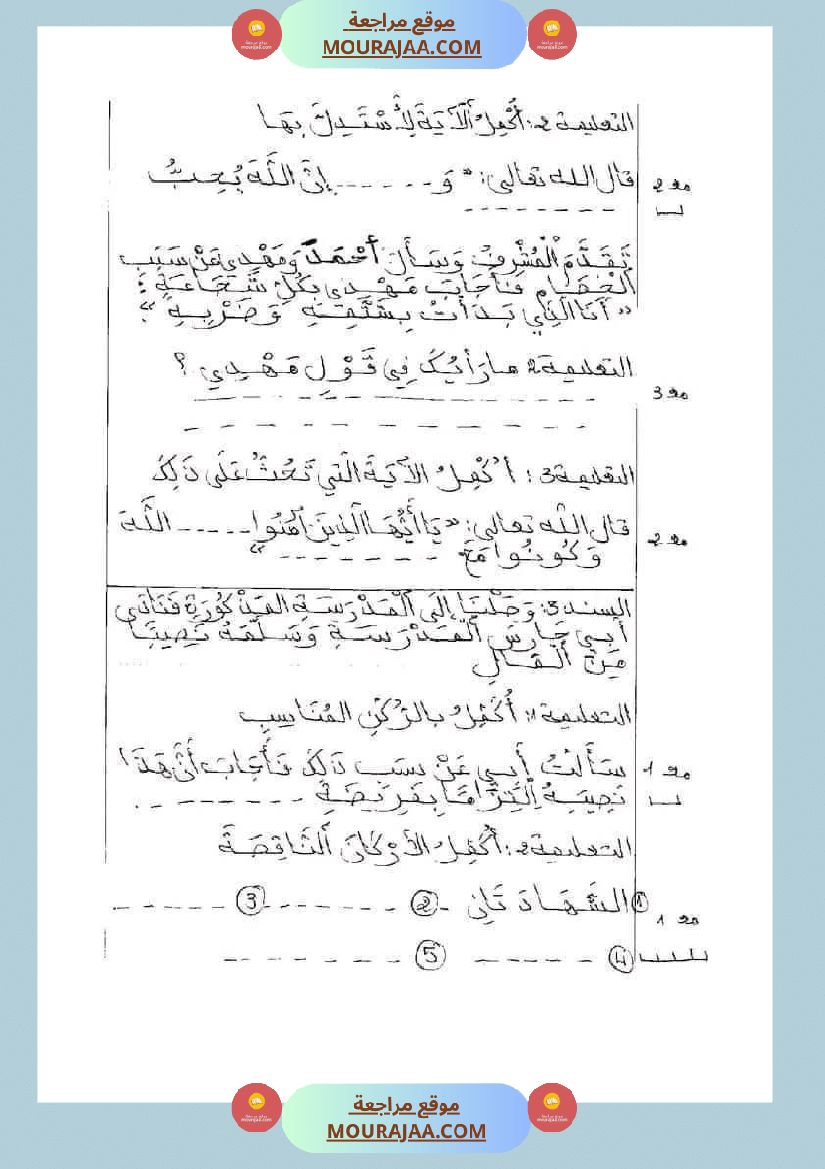 موقع مراجعة
MOURAJAA.COM
التعليمة 2: أُكْمِلُ اَلْآيَةَ لِأَسْتَدِلَّ بِهَا
قال الله تعالى: "وَ ...... إِنَّ اللَّهَ يُحِبُّ
- - - - - - - -
مع 2
تَقَدَّمَ الْمُشْرِفُ وَسَأَلَ أَحْمَدَ وَمَهْدِي عَنْ سَبَبِ
الْخِصَامِ فَأَجَابَ مَهْدِي بِكُلِّ شَجَاعَةٍ:
"أَنَا الَّذِي بَدَأْتُ بِشَتْمِهِ وَضَرْبِهِ"
التعليمة 2 ما رَأْيُكَ فِي قَوْلِ مَهْدِي؟
مع 3
- - - - - - - -
التعليمة 3: أُكْمِلُ الآيَةَ الَّتِي تَحُثُّ عَلَى ذَلِكَ
قال الله تعالى: "يَا أَيُّهَا الَّذِينَ آمَنُوا ...... اللَّهَ
مع 2
وَكُونُوا مَعَ - - - - - - "
السند 3: وَصَلْنَا إِلَى الْمَدْرَسَةِ المَذْكُورَةِ فَنَادَى
أَبِي حَارِسَ الْمَدْرَسَةِ وَسَلَّمَهُ نَصِيبًا
مِنَ الْمَالِ
التعليمة 1: أُكْمِلُ بالرُّكْنِ المُنَاسِبِ
سَأَلْتُ أَبِي عَنْ سَبَبِ ذَلِكَ فَأَجَابَ أَنَّ هَذَا
مع 1
نَصِيبُهُ اِلْتِزَامًا بِفَرِيضَةِ - - - - - - .
التعليمة 2: أُكْمِلُ الأَرْكَانَ النَّاقِصَةَ
① الشَّهَادَتَانِ ② - - - - - ③ - - - - -
مع 1
④ - - - - - ⑤ - - - - - -
موقع مراجعة
MOURAJAA.COM